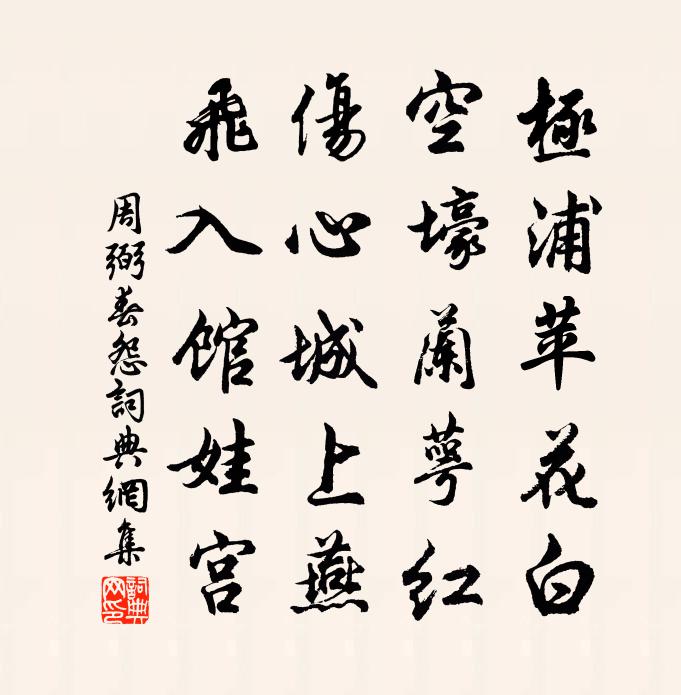 極浦苹花白
空壕蘭蕚紅
傷心城上燕
飛入馆娃宮
周弼春怨詞典網集
詞典网印